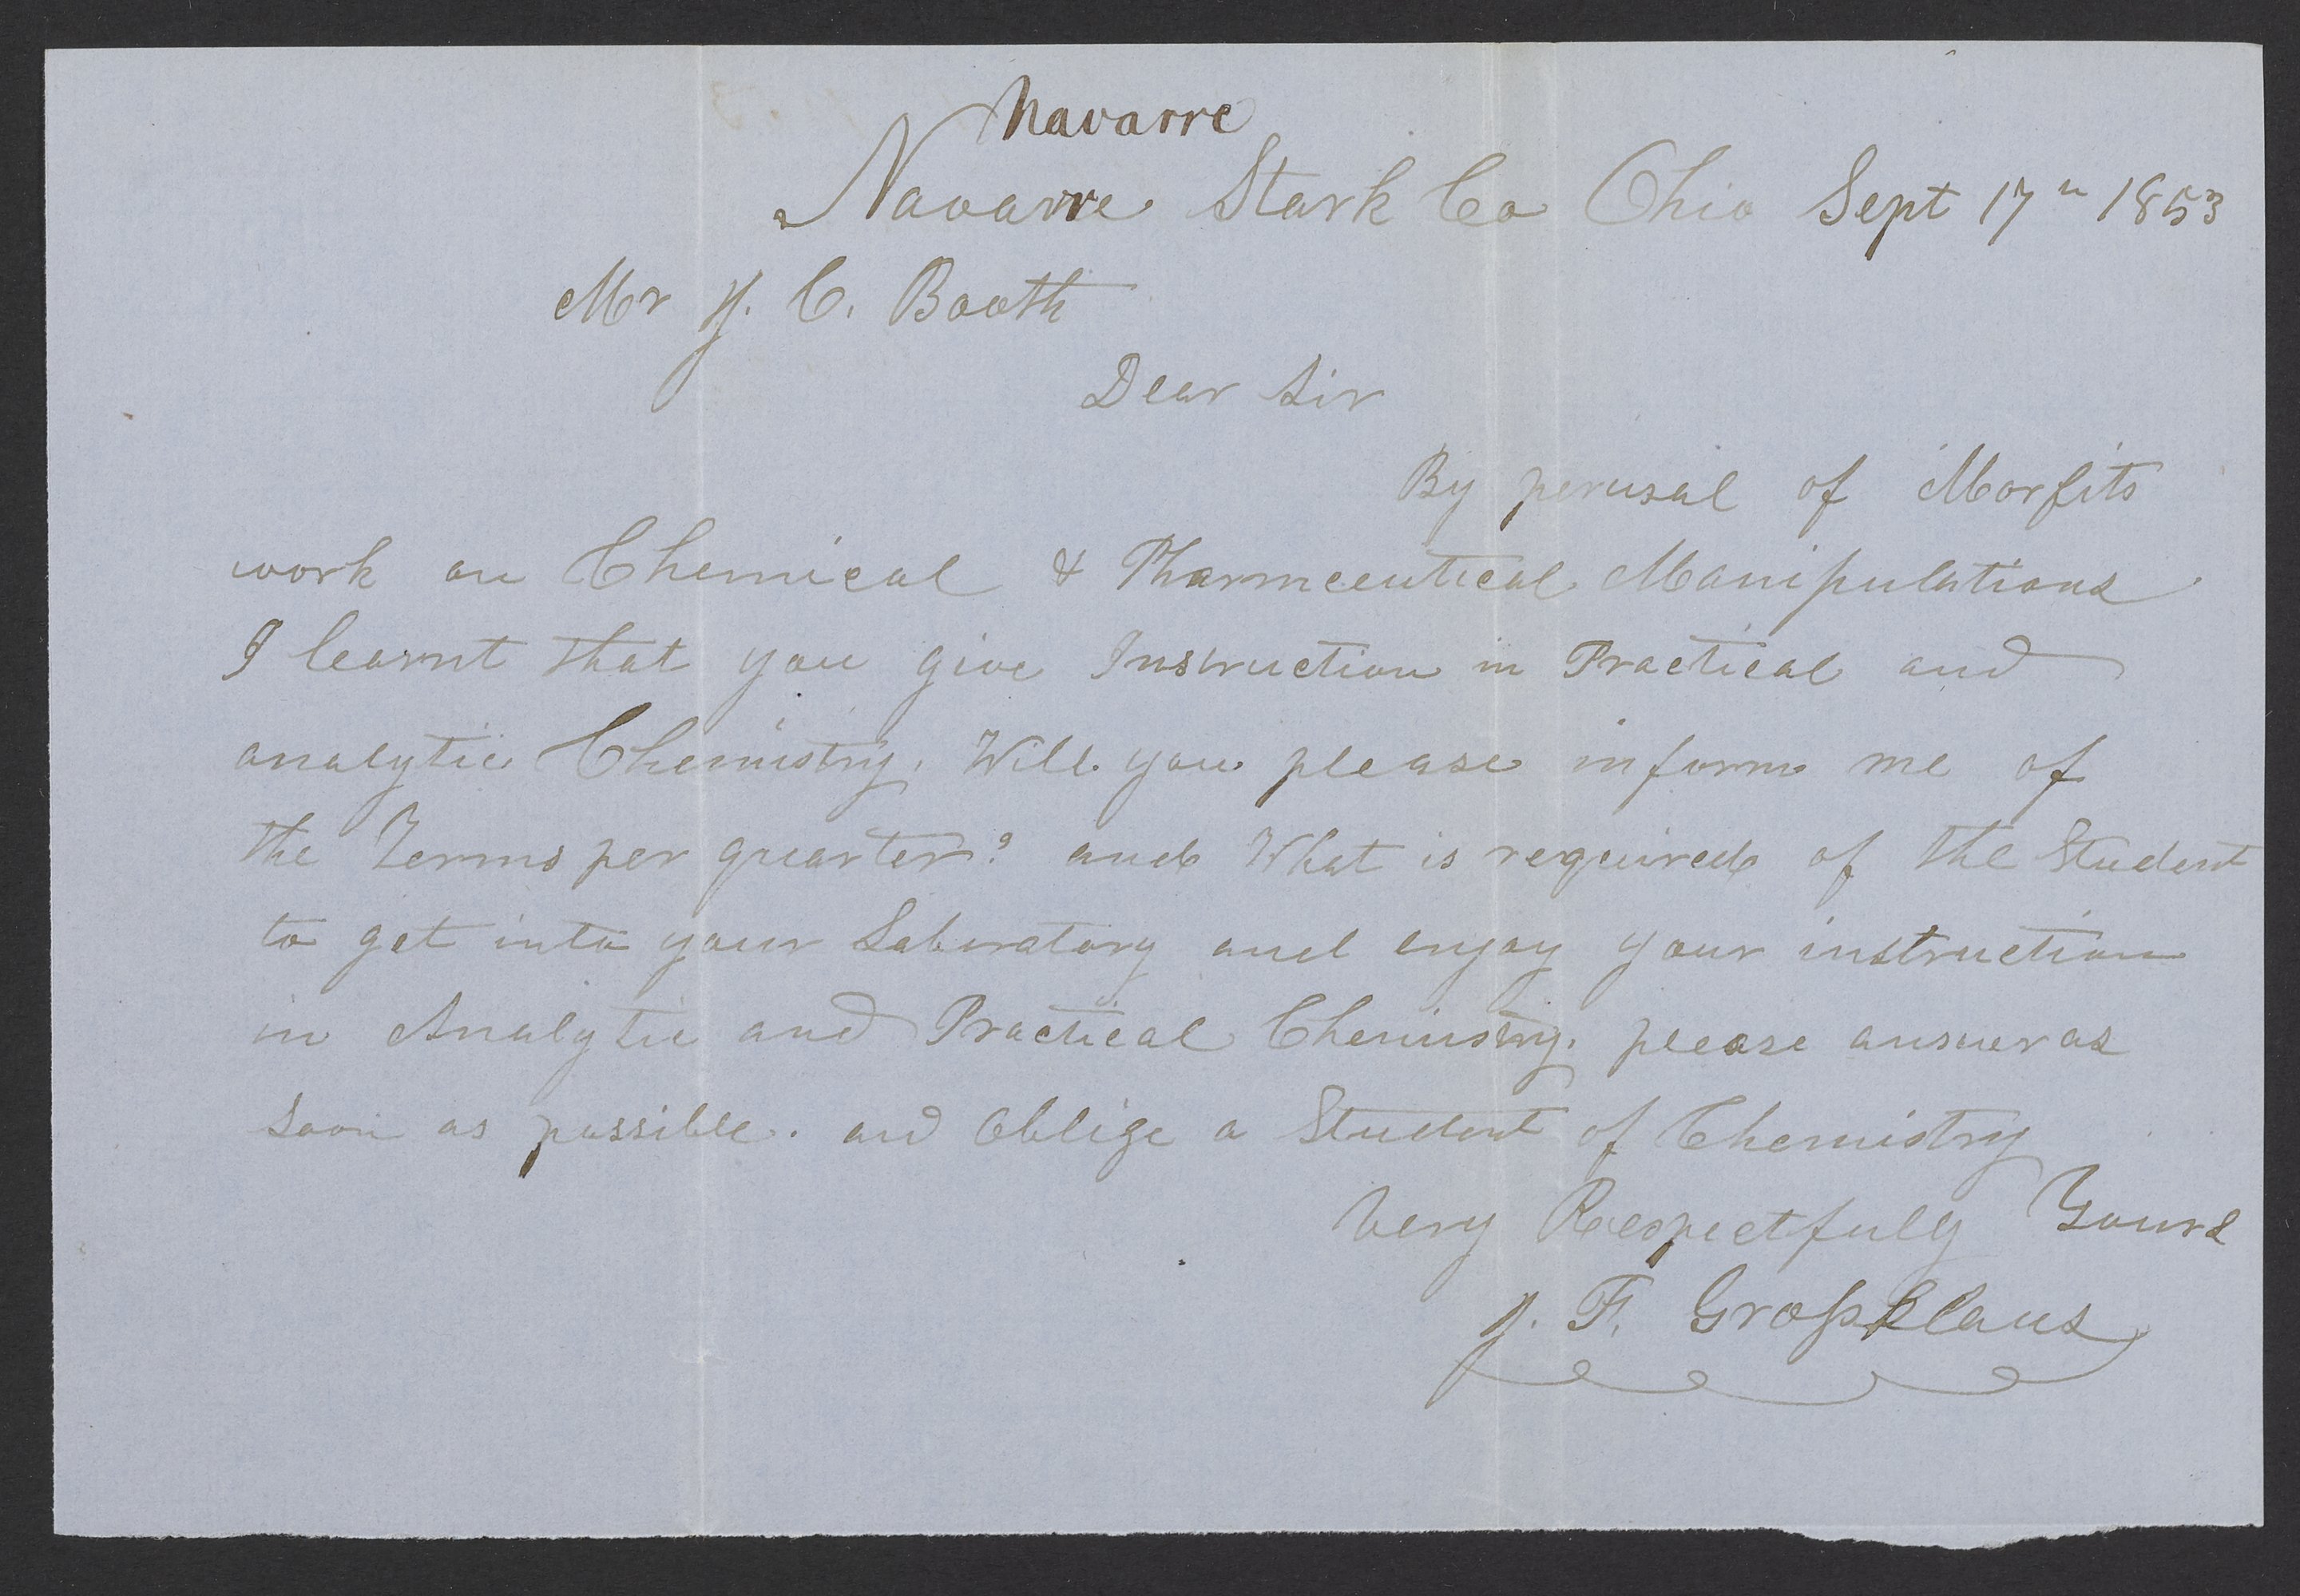 Navarre
Navarre Stark Co Ohio Sept 17th 1853
Mr J. C. Booth
Dear Sir
By perusal of Morfits
work on Chemical & Pharmceutical Manipulations
I learnt that you give Instruction in Practical and
analytic Chemistry. Will you please inform me of
the Terms per quarter? and What is required of the Student
to get into your Laboratory and enjoy your instruction
in Analytic and Practical Chemistry. please answer as
soon as possible. and Oblige a Student of Chemistry
Very Respectfuly Yours
J. F. Großklaus